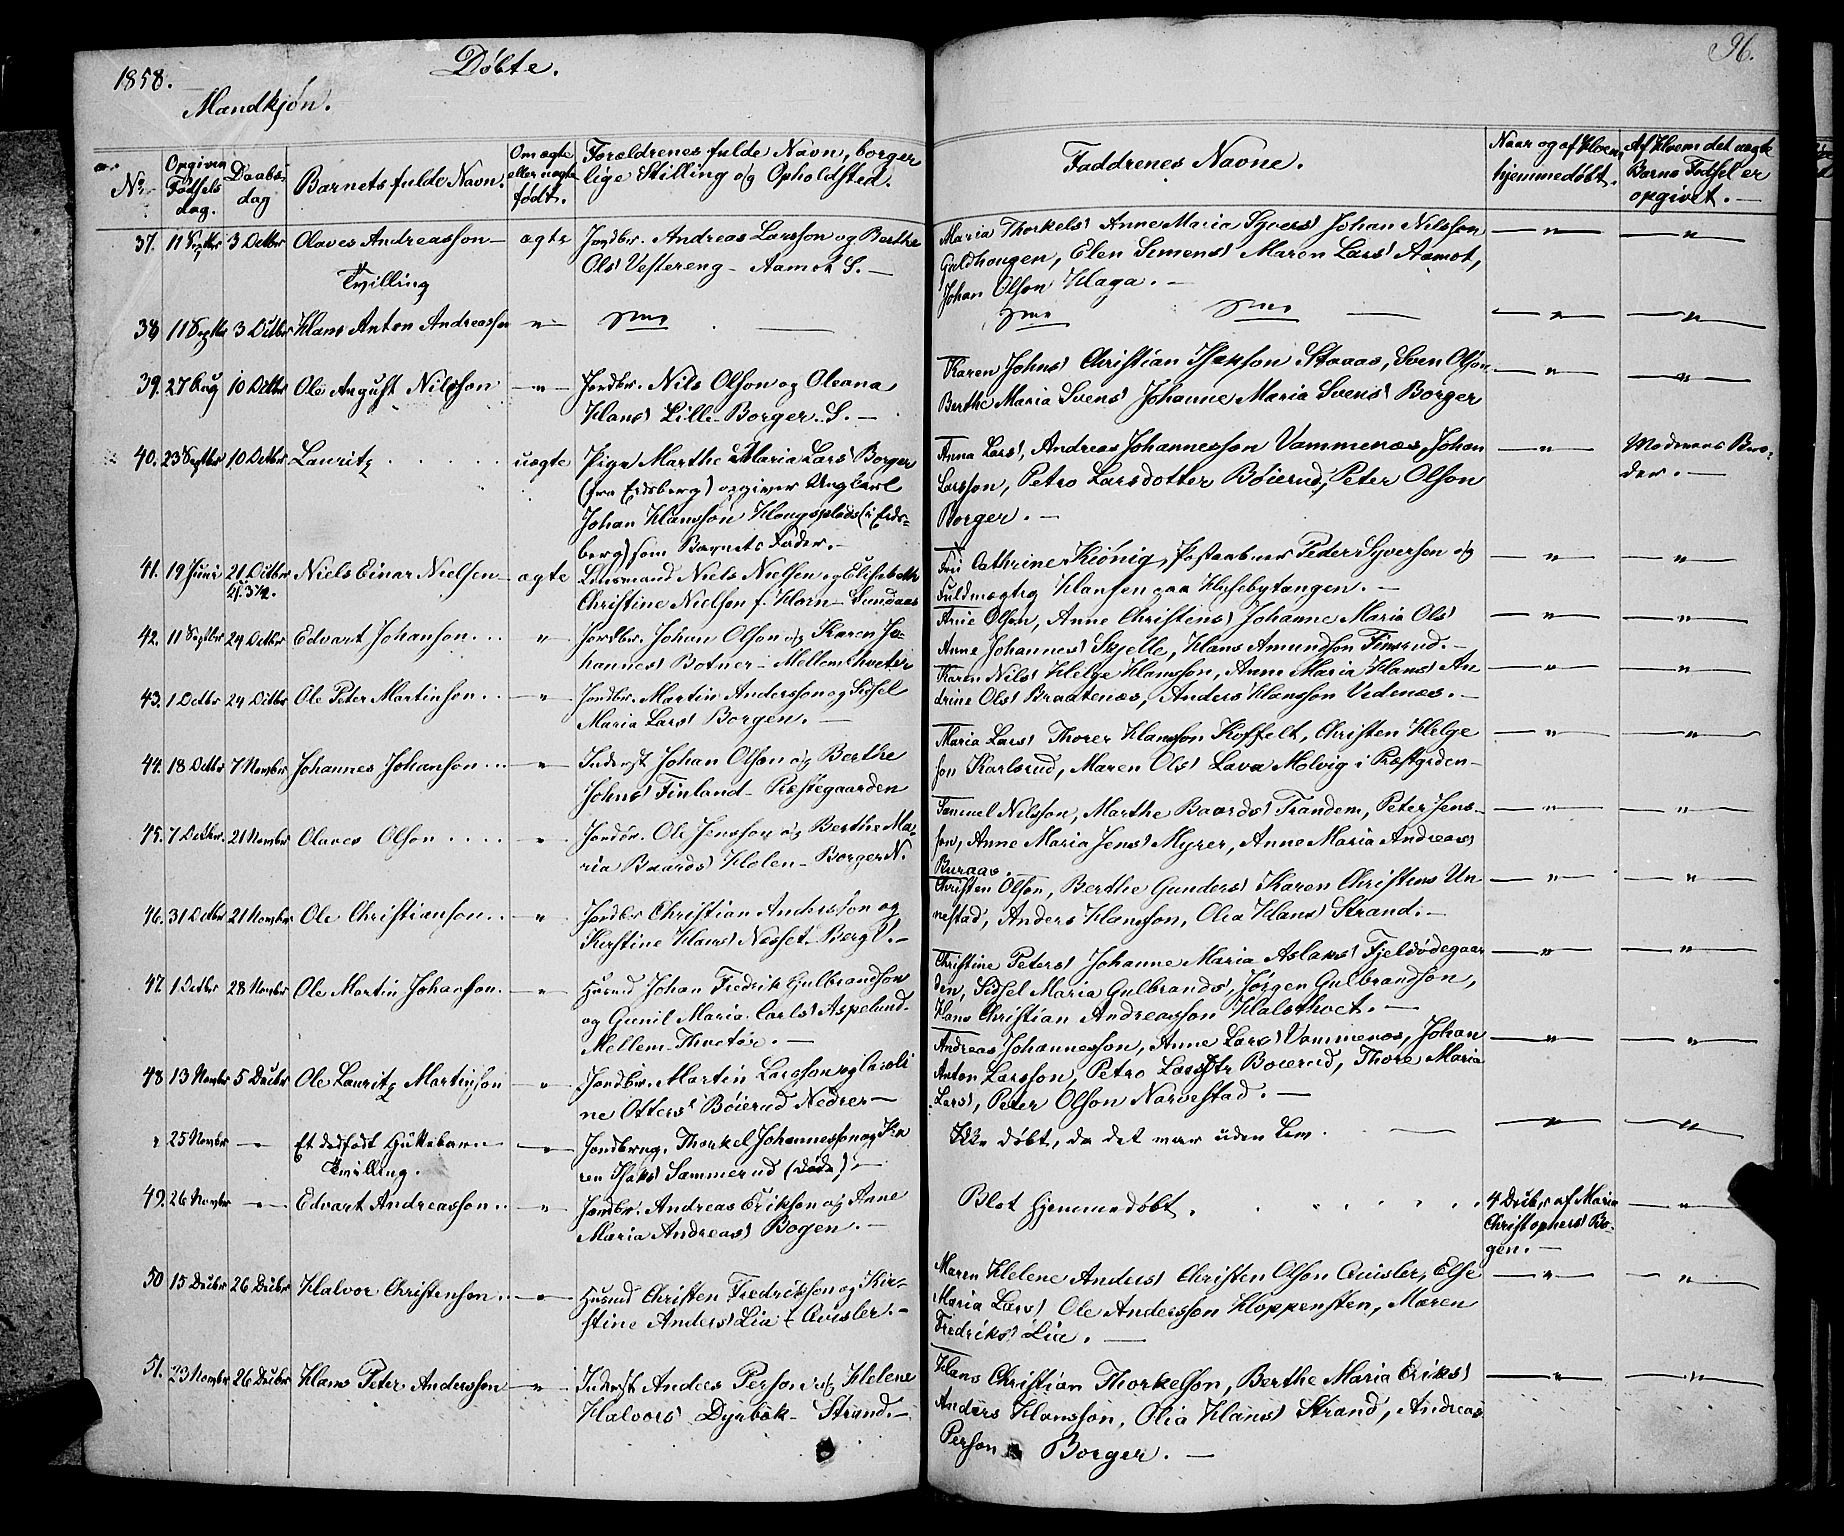 1858.
Døbte.
96.
Mandkjøn.
No
Opgiven Fødsels dag.
Daabs dag
Barnets fulde Navn.
Om ægte eller uægte født.
Forældrenes fulde Navn, borger
lige Stilling og Opholdsted.
Faddrenes Navne.
Naar og af Hvem
hjemmedøbt.
Af Hvem det uægte
Barns Fødsel er
opgivet. —
37. 11 Septbr 3 Octbr Olaves Andreasson — ægte Jordbr. Andreas Larsson og Berthe
Ols' Vestereng - Aamot S. —
Tvilling
Maria Thorkels' Anne Maria Syvers' Johan Nilsson
Guldhaugen, Elen Simens' Maren Lars' Aamot,
Johan Olson Haga. —
38. 11 Septbr 3 Octbr Hans Anton Andreasson
39. 27 Aug 10 Octbr Ole August Nilsson Jordbr. Nils Olson og Oleana
Hans' Lille Borger. S. —
Karen Johns' Christian Staaas, Sven Olson
Berthe Maria Svens' Johanne Maria Svens' Borger
40. 23 Septbr 10 Octbr Lauritz uægte Pige Marthe Maria Lars' Borger
(fra Eidsberg) opgiver Ungkarl
Johan Hansson Haugsplads (i Eids-
berg) som Barnets Fader. —
Anna Lars', Andreas Johannesson Vammenæs, Johan
Larsson, Petro Larsdotter Bøierud, Peter Olson
Borger. —
Moderens Bro-
der. —
41. 19 Juni 21 Octbr Niels Einar Nielsen ægte Lensmand Niels Nielsen og Elisabeth
Christine Nielsen f. Horn - Sundaas
Fru Cathrine Kiönig, Postaabner Peder Syverson og
Fuldmægtig Hansen paa Husebytangen. —
42. 11 Septbr 24 Octbr Edvart Johanson Jordbr. Johan Olson og Karen Jo-
hannes' Botner - Mellem
Arne Olson, Anne Christens' Johanne Maria Ols'
Anne Johannes' Skjelle, Hans Amundson Timrud. —
43. 1 Octbr 24 Octbr Ole Peter Martinson Jordbr. Martin Andersson og Sidsel
Maria Lars' Borgen. —
Karen Nils' Helge Hansson, Anne Maria Hans' An
drine Ols' Braatenæs, Anders Hansson Vedenæs. —
44. 18 Octbr 7 Novbr Johannes Johanson Inderst Johan Olson og Berthe
Johns' Finland - Præstegaarden
Maria Lars' Thorer Hansson Koffelt, Christen Helge
son Karlsrud, Maren Ols' Lava Molvig i Præstgrden —
45. 7 Octbr. 21 Novbr Olaves Olson Jordbr. Ole Jensson og Berthe Ma-
ria Baards' Holen - Borger N.
Samuel Nilsson, Marthe Baards' Trandem, Peter Jens-
son, Anne Maria Jens' Myrer, Anne Maria Andreas'
Buraas.
46. 31 Octbr 21 Novbr Ole Christianson Jordbr Christian Andersson og
Kirstine Hans' Næsset - Berg S. —
Christen Olson, Berthe Gunders' Karen Christens Un
nestad, Anders Hansson, Olea Hans' Strand. —
47. 1 Octbr 28 Novbr Ole Martin Johanson Husmd Johan Fredrik Gulbrandson
og Gunil Maria Carls' Aspelund
Mellem
Christine Peters' Johanne Maria Aslaks' Fjeldødegaar
den, Sidsel Maria Gulbrands', Jørgen Gulbrandson,
Hans Christian Andreasson Halsthvet. —
48 13 Novbr 5 Decbr Ole Lauritz Martinson Jordbr. Martin Larsson og Caroli
ne Otters' Bøierud Nedre —
Andreas Johannesson, Anne Lars' Vammenæs, Johan
Anton Larsson, Petro Larsdtr Bøierud, Thore Maria
Lars', Peter Olson Narvestad. —
25 Novbr — Et dødfødt Guttebarn
Tvilling.
Jordbrug. Thorkel Johannesson og Ka
ren Isaks' Sammerud (døde) —
Ikke døbt, da det var uden Liv.
49. 26 Novbr Edvart Andreasson Jordbr. Andreas Erikson og Anne
Maria Andreas' Bogen. —
Blot hjemmedøbt.
4 Decbr. af Maria
Christophers' Bo-
gen. —
50 15 Decbr 26 Decbr Halvor Christenson Husmd Christen Fredrikson og Kir-
stine Anders' Lia - Quisler. —
Maren Helene Anders' Christen Olson Quisler, Else
Maria Lars' Ole Andersson Kloppensten, Maren
Fredriks' Lia. —
51. 23 Novbr 26 Decbr Hans Peter Andersson Inderst Anders Person og Helene
Halvors' Dyrbæk - Strand. —
Hans Christian Thorkelson, Berthe Maria Eriks'
Anders Hansson, Olia Hans' Strand, Andreas
Person Borger. —